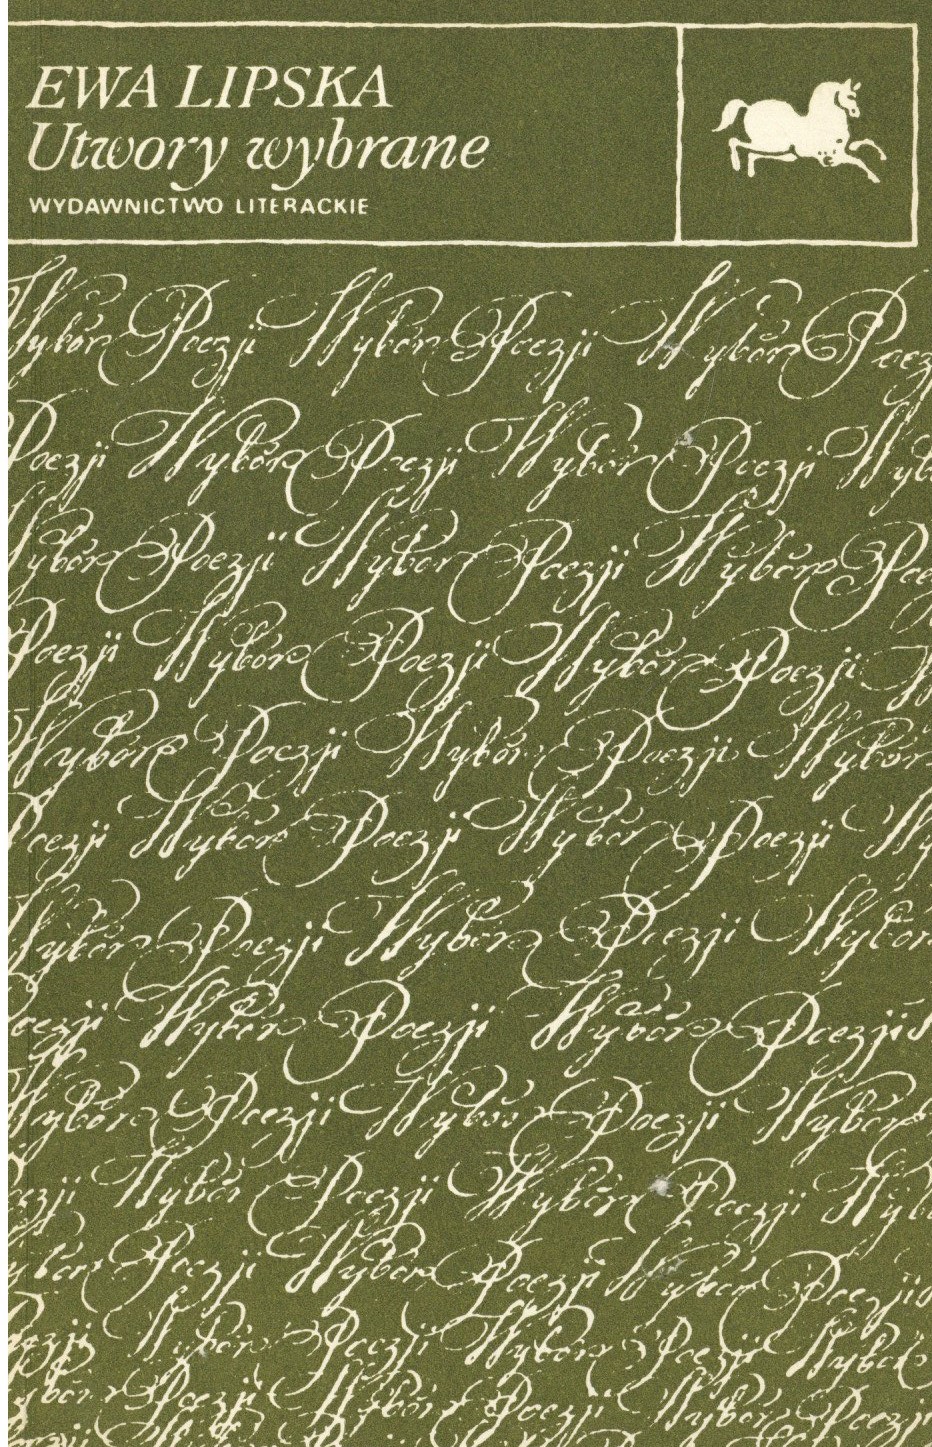 EWA LIPSKA
Utwory wybrane
WYDAWNICTWO LITERACKIE
Wybór Poezji Wybór Poezji Wybór Poezj
Poezji Wybór Poezji Wybór Poezji Wyb
Wybór Poezji Wybór Poezji Wybór Poe
Poezji Wybór Poezji Wybór Poezji W
Wybór Poezji Wybór Poezji Wybór
Poezji Wybór Poezji Wybór Poezji Wy
Wybór Poezji Wybór Poezji Wybor
oezji Wybór Poezji Wybór Poezji
Wybór Poezji Wybór Poezji Wybór
ezji Wybór Poezji Wybór Poezji Wyb
ybór Poezji Wybór Poezji Wybór Poezji
oezji Wybór Poezji Wybór Poezji Wybór
ybór Poezji Wybór Poezji Wybór Poezji